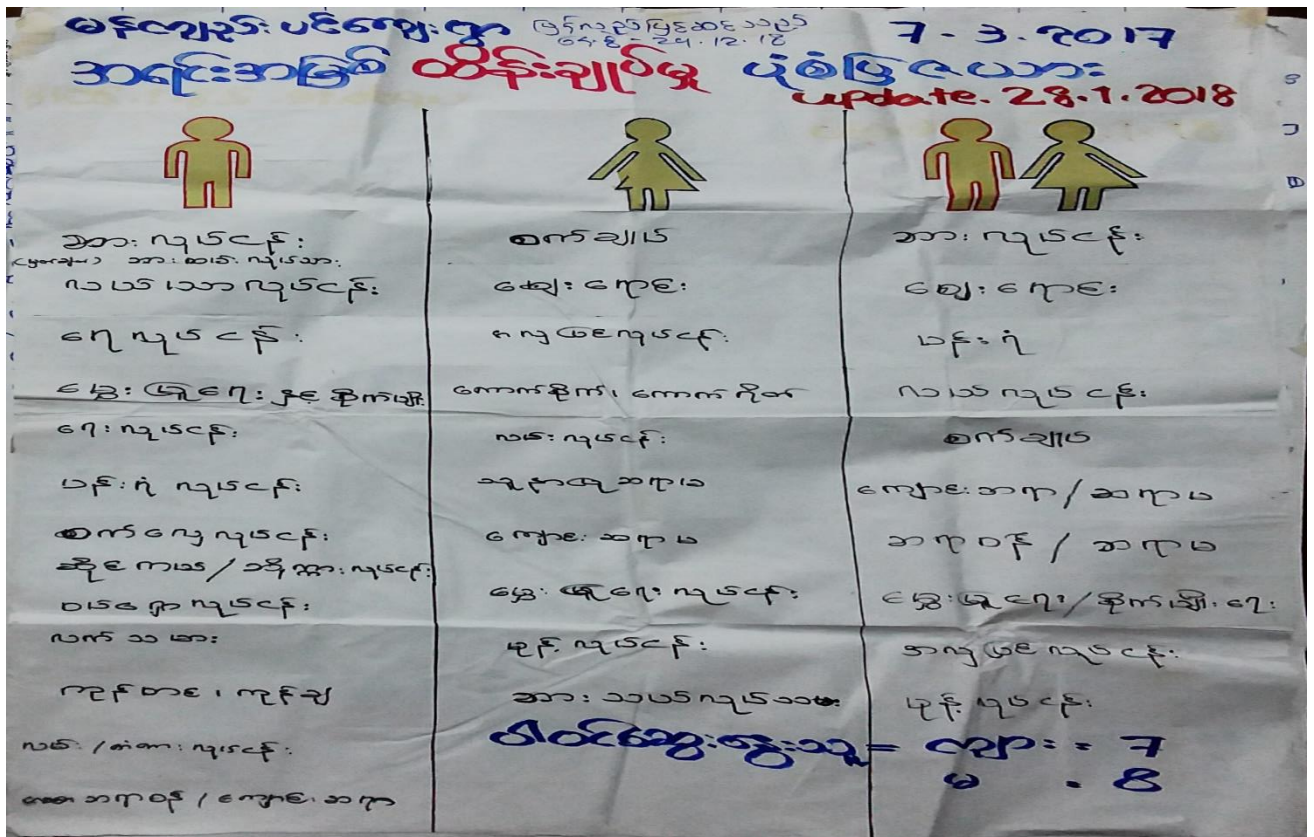 မန်ကျည်းပင်ချေးရွာ
ပြန်လည်ပြင်ဆင်သည်
24.12.18
7.3.2017
အရင်းအမြစ် ထိန်းချုပ်မှု ပုံစံပြဇယား
update. 28.1.2018
ဆားလုပ်ငန်း
လယ်ယာလုပ်ငန်း
ရေလုပ်ငန်း
မွေးမြူရေးနှင့် စိုက်ပျိုး
ရေးလုပ်ငန်း
ပန်းရံ လုပ်ငန်း
စက်လှေလုပ်ငန်း
ဆိုင်ကယ် / လုပ်ငန်း
ဝပ်ရှော့လုပ်ငန်း
လက်သမား
ကုန်တင်၊ ကုန်ချ
လမ်း / တံတားလုပ်ငန်း
ဆရာဝန် / ကျောင်းဆရာ
စက်ချုပ်
ဈေးရောင်း
အလှပြင်လုပ်ငန်း
ကောက်စိုက်၊ ကောက်ရိတ်
လမ်းလုပ်ငန်း
သူနာပြုဆရာမ
ကျောင်းဆရာမ
မွေးမြူရေးလုပ်ငန်း
မုန့်လုပ်ငန်း
ဆားလုပ်ငန်း
ဈေးရောင်း
ပန်းရံ
လယ်လုပ်ငန်း
စက်ချုပ်
ကျောင်းဆရာ / ဆရာမ
ဆရာဝန် / ဆရာမ
မွေးမြူရေး / စိုက်ပျိုးရေး
အလှပြင်လုပ်ငန်း
မုန့်လုပ်ငန်း
ပါဝင်ဆွေးနွေးသူ = ကျား = 7
မ = 8